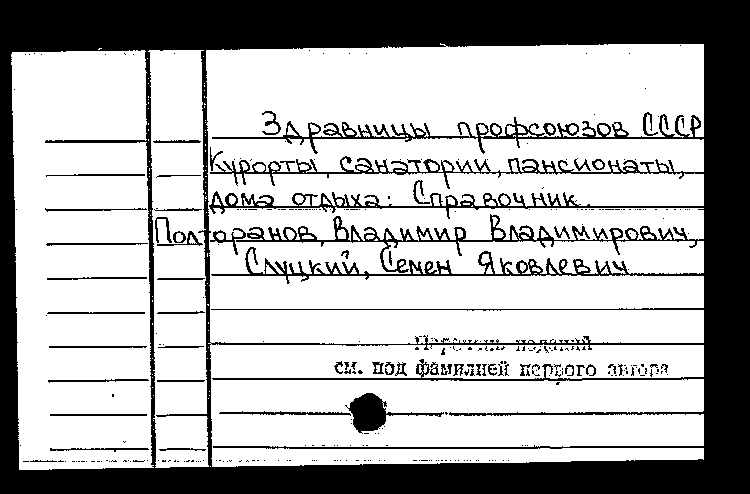 Здравницы профсоюзов СССР
Курорты, санатории, пансионаты,
дома отдыха: Справочник.
Полторанов, Владимир Владимирович,
Слуцкий, Семен Яковлевич
Перечень изданий
см. под фамилией первого автора